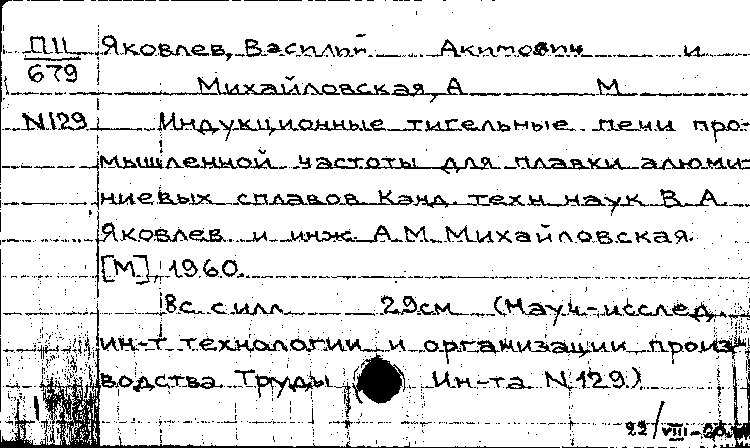 П11 Яковлев, Василий Акимович и
679 Михайловская, А М
N129 Индукционные тигельные печи про-
мышленной частоты для плавки алюми-
ниевых сплавов Канд. техн наук В. А.
Яковлев и инж. А.М. Михайловская.
[М], 1960.
8с. с илл 29см (Науч.-исслед.
ин-т технологии и организации произ-
водства Труды Ин-та N129)
22/VIII-